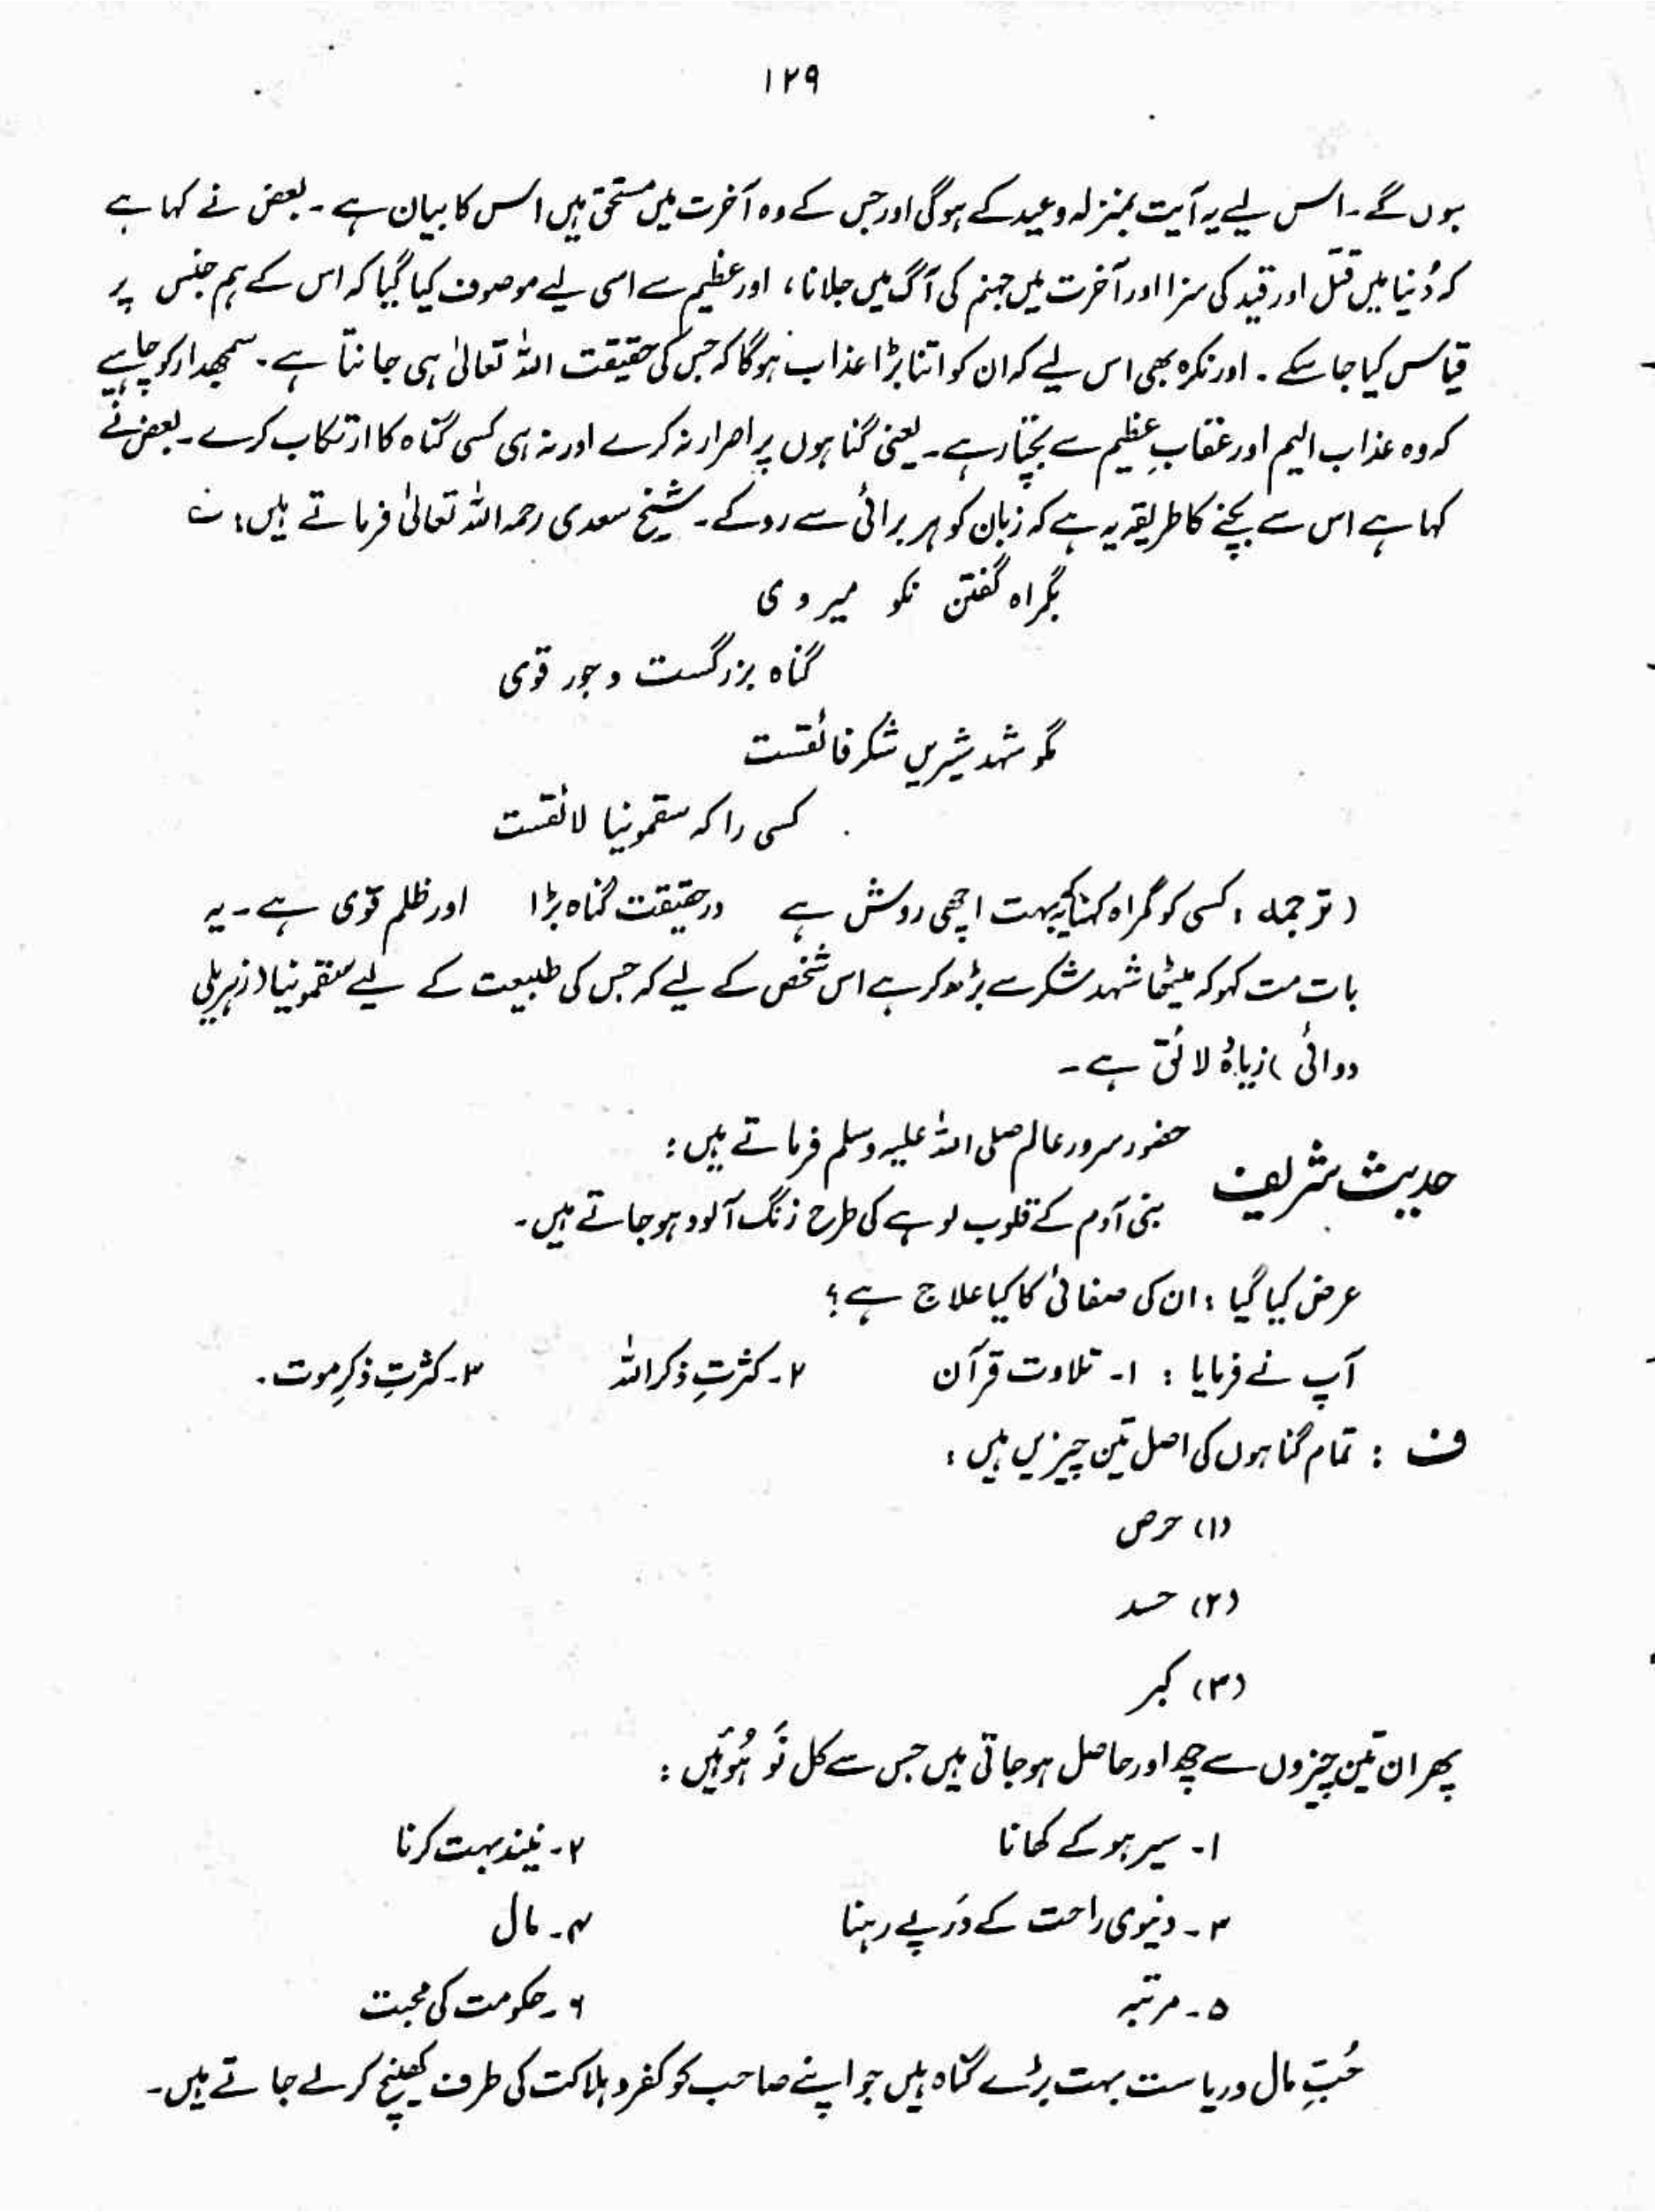 ۱۲۹
ہوں گے۔ اس لیے یہ آیت بمنزلہ وعید کے ہوگی اور جس کے وہ آخرت میں مستحق ہیں اس کا بیان ہے۔ بعض نے کہا ہے
کہ دُنیا میں قتل اور قید کی سزا اور آخرت میں جہنم کی آگ میں جلانا، اور عظیم سے اسی لیے موصوف کیا گیا کہ اس کے ہم جنس پر
قیاس کیا جا سکے۔ اور نکرہ بھی اس لیے کہ ان کو اتنا بڑا عذاب ہوگا کہ جس کی حقیقت اللہ تعالیٰ ہی جانتا ہے۔ سمجھدار کو چاہیے
کہ وہ عذاب الیم اور عقابِ عظیم سے بچتا رہے۔ یعنی گناہوں پر اصرار نہ کرے اور نہ ہی کسی گناہ کا ارتکاب کرے۔ بعض نے
کہا ہے اس سے بچنے کا طریقہ یہ ہے کہ زبان کو ہر برائی سے روکے۔ شیخ سعدی رحمہ اللہ تعالیٰ فرماتے ہیں: ؎
بگراہ گفتن نکو میروی
گناہ بزرگست و جور قوی
مگو شہد شیریں شکر فائقست
کسی را کہ سقمونیا لائقست
(ترجمہ: کسی کو گمراہ کہنا کہ بہت اچھی روش ہے درحقیقت گناہ بڑا اور ظلم قوی ہے۔ یہ
بات مت کہو کہ میٹھا شہد شکر سے بڑھ کر ہے اس شخص کے لیے کہ جس کی طبیعت کے لیے سقمونیا (زہریلی
دوائی) زیادہ لائق ہے۔
حدیث شریف حضور سرور عالم صلی اللہ علیہ وسلم فرماتے ہیں:
بنی آدم کے قلوب لوہے کی طرح زنگ آلود ہو جاتے ہیں۔
عرض کیا گیا: ان کی صفائی کا کیا علاج ہے؟
آپ نے فرمایا: ۱۔ تلاوت قرآن ۲۔ کثرتِ ذکر اللہ ۳۔ کثرتِ ذکرِ موت۔
ف: تمام گناہوں کی اصل تین چیزیں ہیں:
(۱) حرص
(۲) حسد
(۳) کبر
پھر ان تین چیزوں سے چھ اور حاصل ہو جاتی ہیں جس سے کل نَو ہُوئیں:
۱۔ سیر ہو کے کھانا ۲۔ نیند بہت کرنا
۳۔ دنیوی راحت کے دَرپے رہنا ۴۔ مال
۵۔ مرتبہ ۶۔ حکومت کی محبت
حُبِّ مال و ریاست بہت بڑے گناہ ہیں جو اپنے صاحب کو کفر و ہلاکت کی طرف کھینچ کر لے جاتے ہیں۔